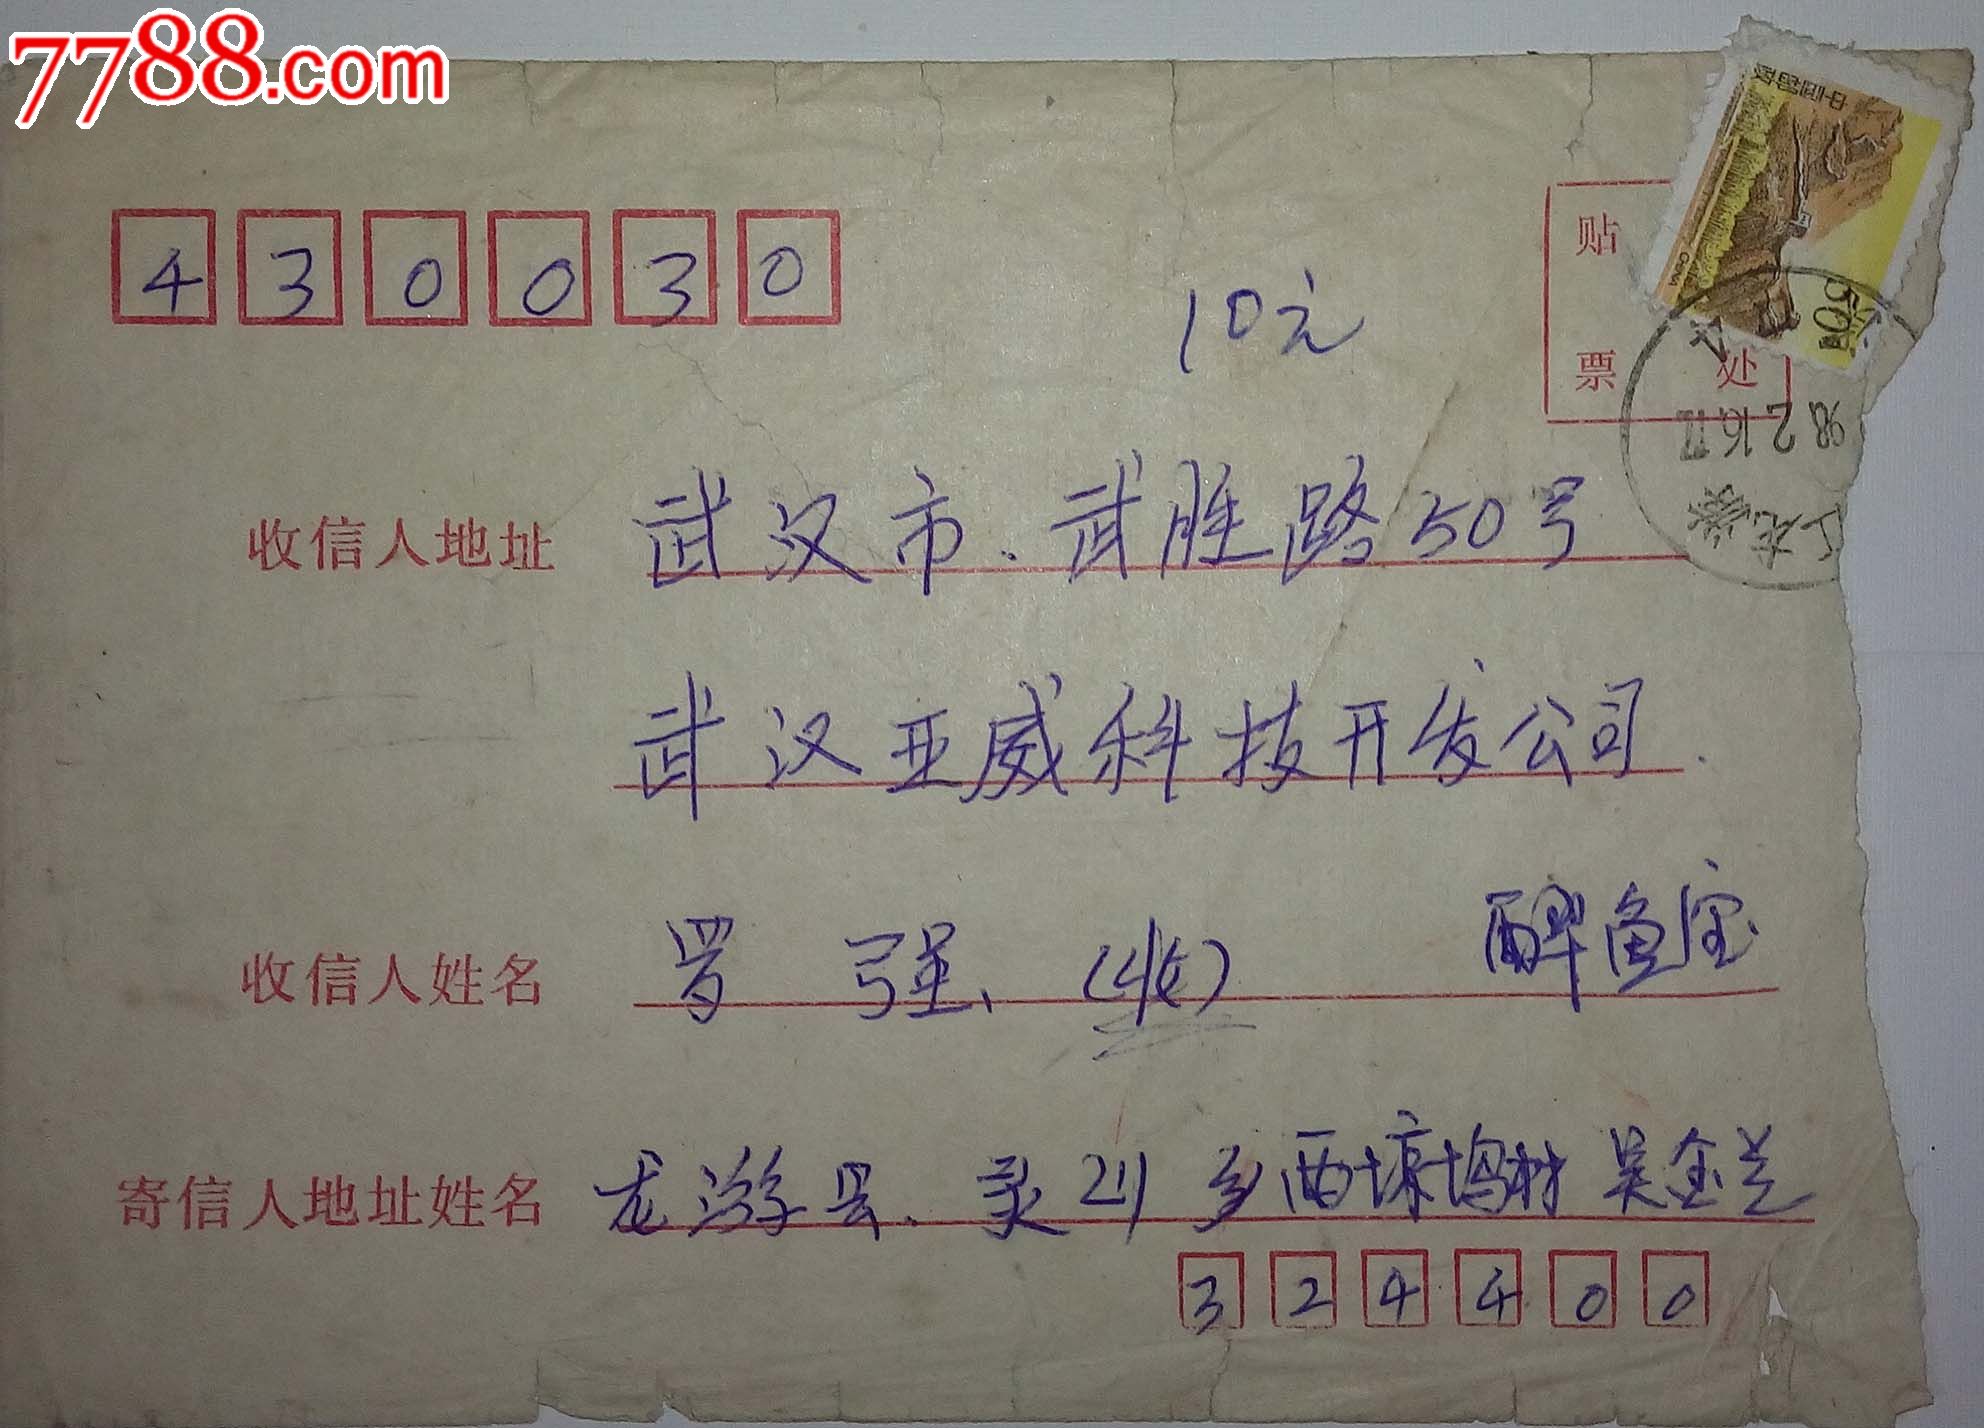 7788.com
430030
10元
贴
票 处
中国邮政
CHINA
50分
98.2.16.17
收信人地址 武汉市.武胜路50号
武汉亚威科技开发公司.
收信人姓名 罗强、(收) 醉鱼宝
寄信人地址姓名 龙游县.灵山乡西垅坞村 吴金兰
324400